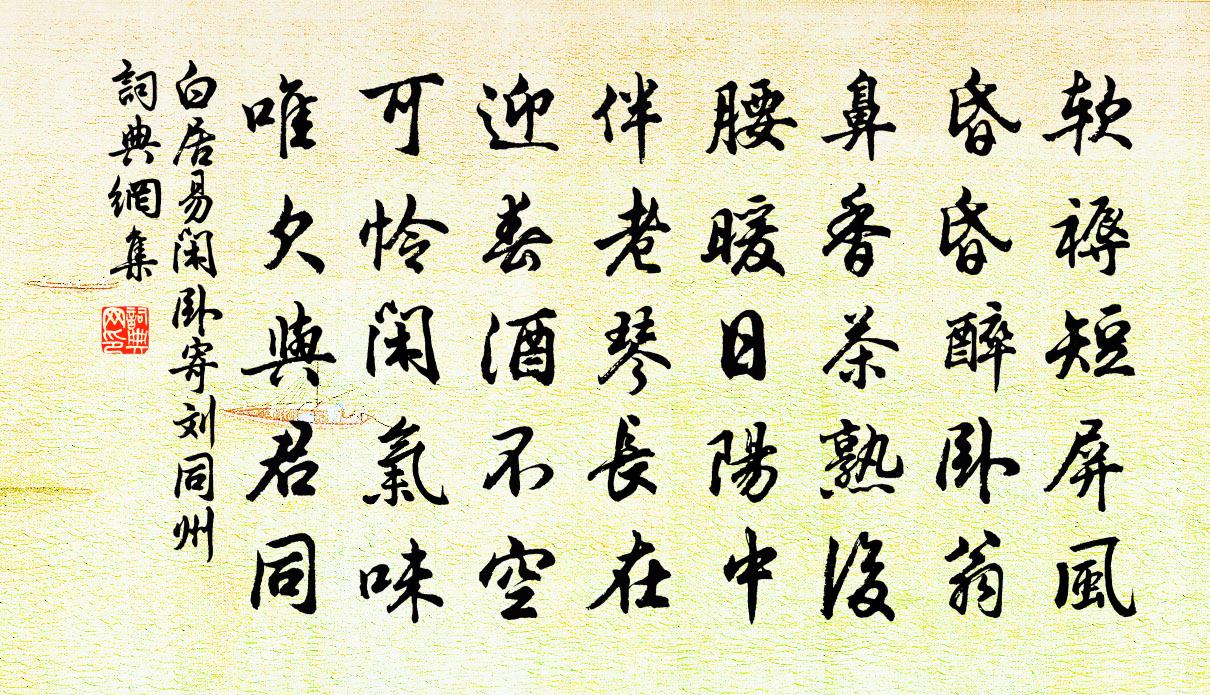 软褥短屏風
昏昏醉卧翁
鼻香茶熟後
腰暖日陽中
伴老琴長在
迎春酒不空
可怜闲氣味
唯欠與君同
白居易闲卧寄刘同州
詞典網集
詞典网印